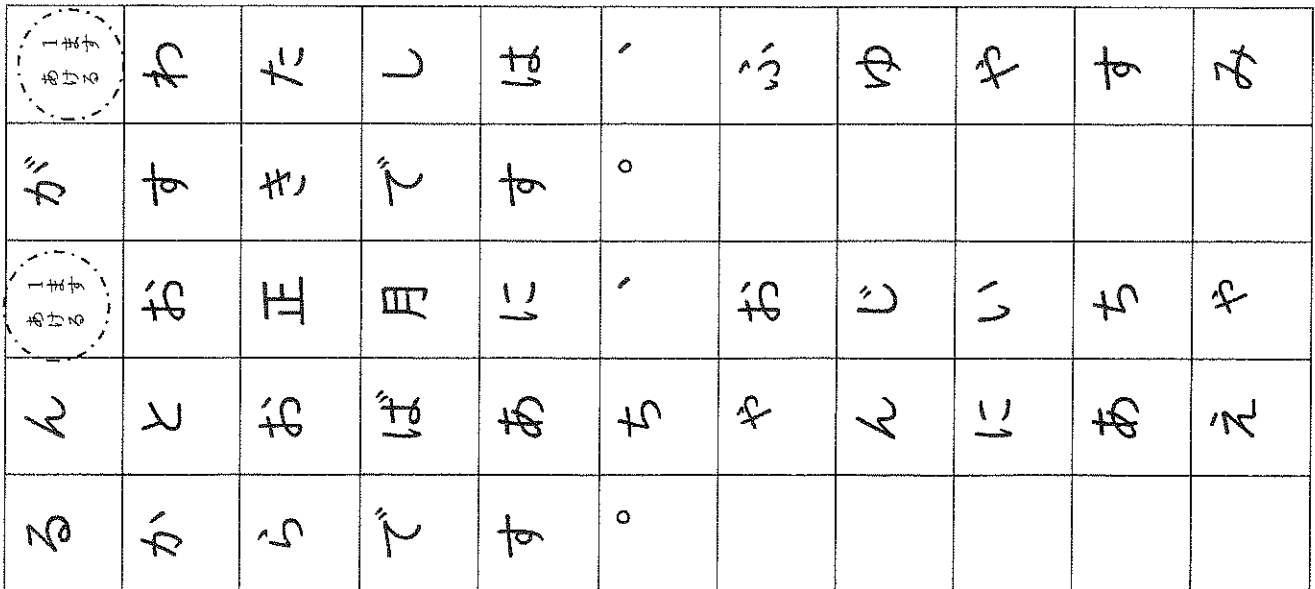 1ます
あける
わたしは、ふゆやすみ
がすきです。
1ます
あける
お正月に、おじいちゃ
んとおばあちゃんにあえ
るからです。